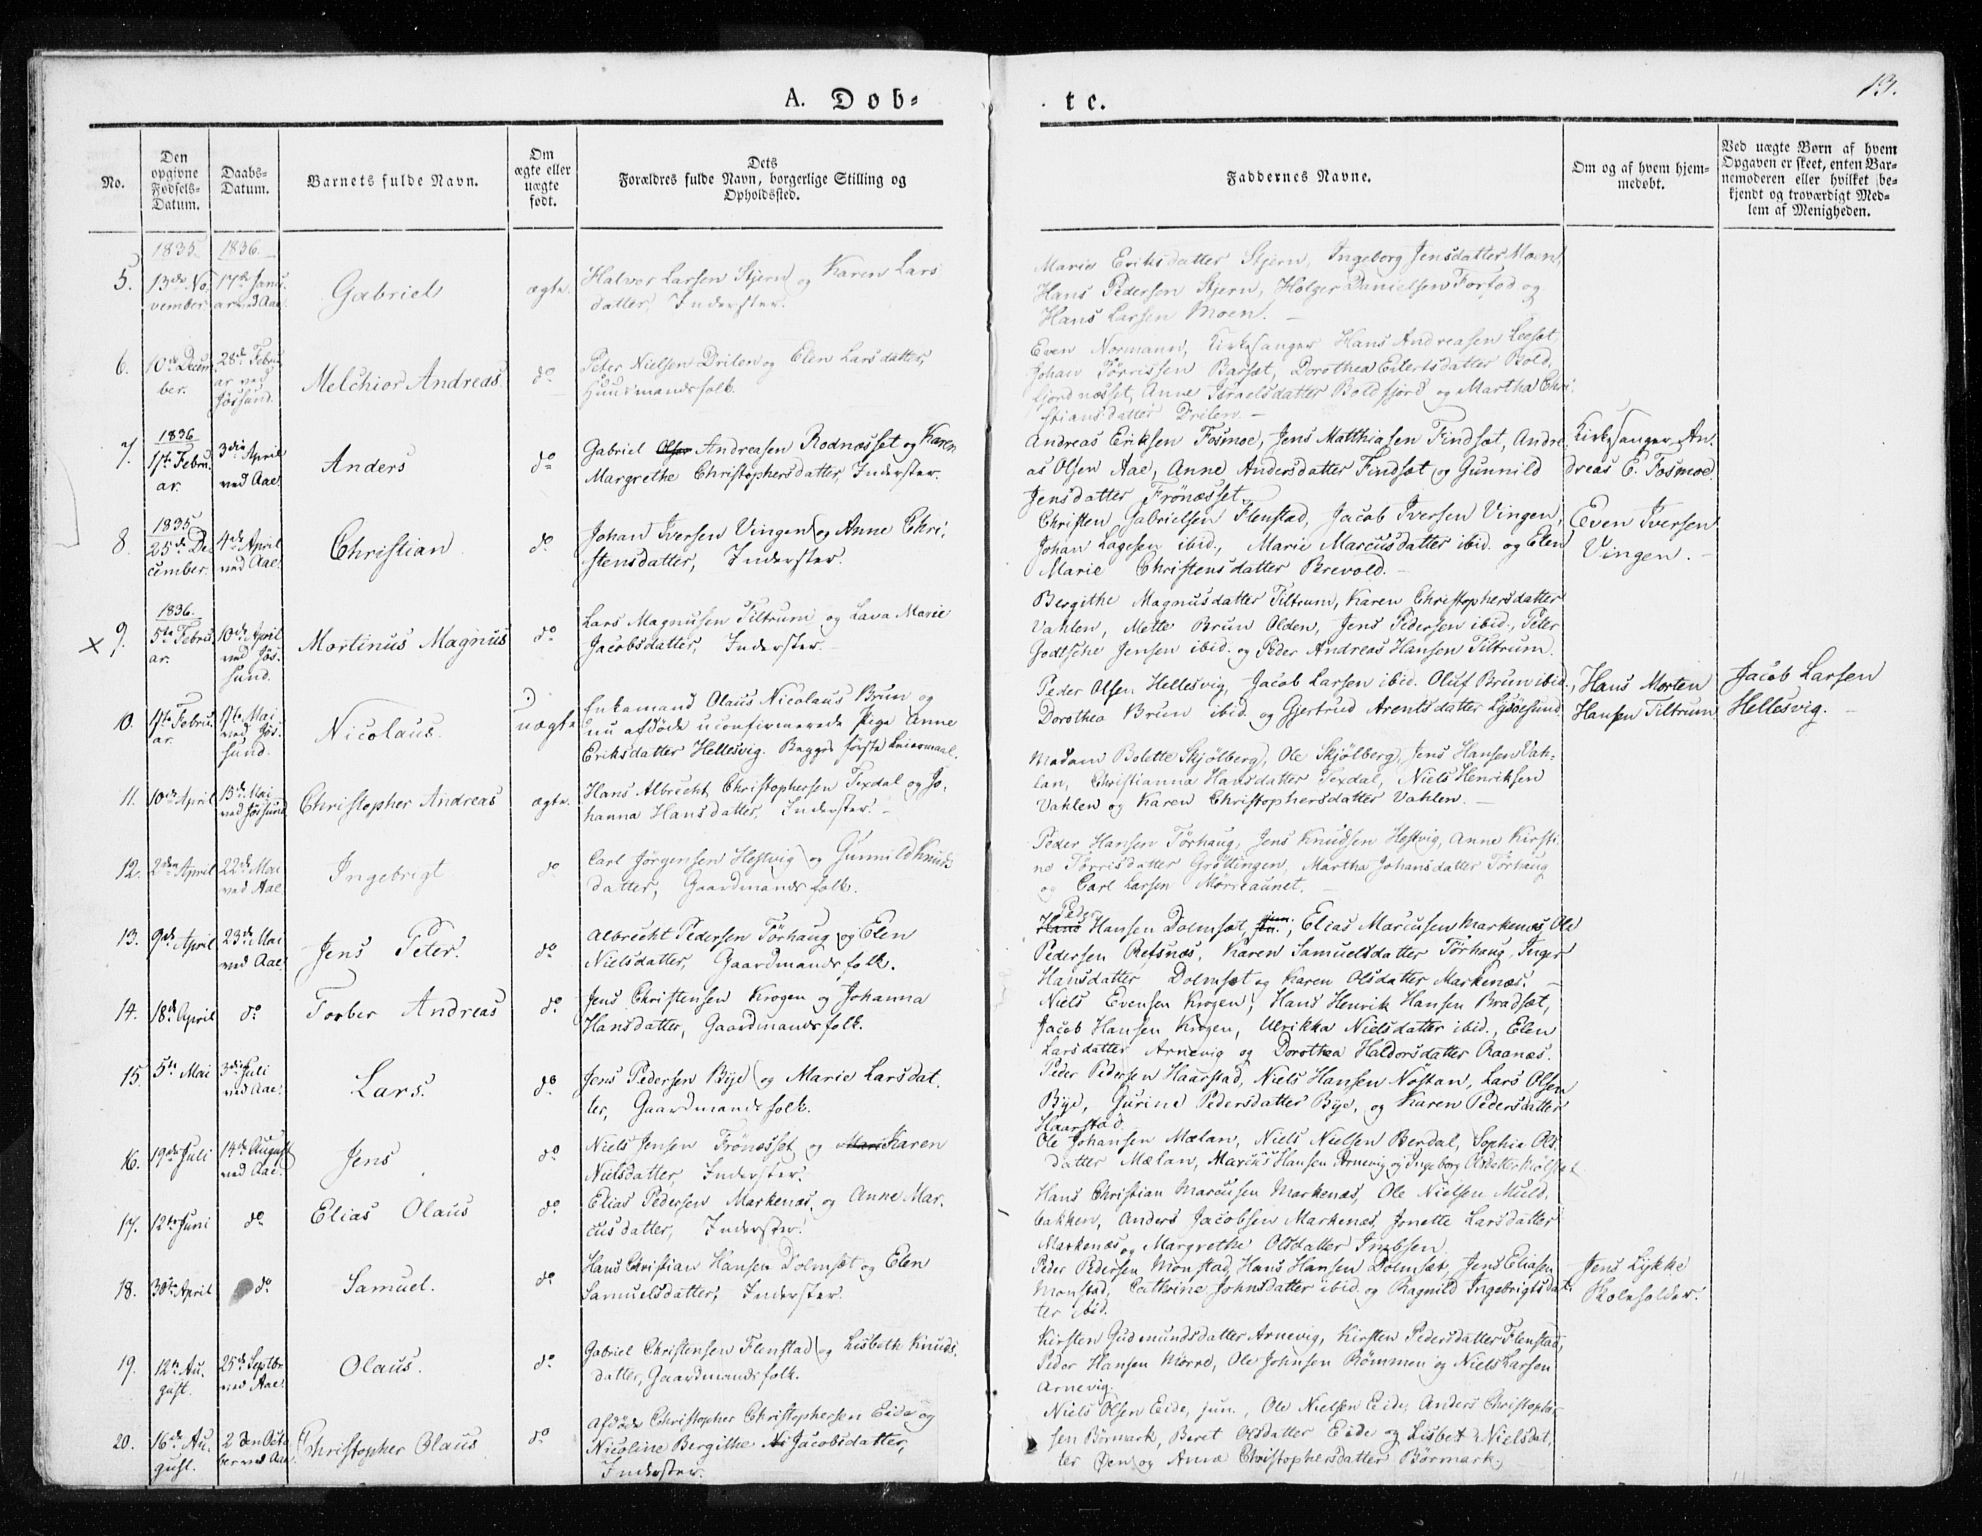 A. Døb-
te.
13.
No.
Den opgivne Fødsels-Datum.
Daabs-Datum.
Barnets fulde Navn.
Om ægte eller uægte født.
Dets
Forældres fulde Navn, borgerlige Stilling og
Opholdssted.
Faddernes Navne.
Om og af hvem hjem-
medøbt.
Ved uægte Børn af hvem
Opgaven er skeet, enten Bar-
nemoderen eller hvilket be-
kjendt og troværdigt Med-
lem af Menigheden.
1835. 1836.
5. 13de No-
vember. 17de Janu-
ar ved Aae. Gabriel ægte.
Halvor Larsen Stjern og Karen Lars
datter, Inderster.
Marie Eriksdatter Stjern, Ingeborg Jensdatter Moen,
Hans Pedersen Stjern, Holger Danielsen Forfod og
Hans Larsen Moen.
6. 10de Decem-
ber. 28de Febru-
ar ved
Jøssund. Melchior Andreas do
Peter Nielsen Drilen og Elen Larsdatter,
Huusmandsfolk.
Even Normann, Kirkesanger Hans Andreasen Leeset,
Johan Tørrissen Barsæt, Dorothea Eilertsdatter Bold-
fjordnæsset, Anne Israelsdatter Boldfjord og Martha Chri-
stiansdatter Drilen.
7. 1836
1ste Febru-
ar. 3die April
ved Aae. Anders do
Gabriel Olsen Andreasen Rodnæsset og Karen
Margrethe Christophersdatter, Inderster.
Andreas Eriksen Fosmoe, Jens Matthiasen Findsæt, Andre-
as Olsen Aae, Anne Andersdatter Findsæt og Gunnild
Jensdatter Frønæsset.
Kirkesanger An-
dreas E. Fosmoe.
8. 1835
25de De-
cember. 4de April
ved Aae. Christian do
Johan Iversen Vingen og Anne Chri-
stensdatter, Inderster.
Christen Gabrielsen Flenstad, Jacob Iversen Vingen,
Johan Lagesen ibid., Marie Marcusdatter ibid. og Elen
Marie Christensdatter Brevold.
Even Iversen
Vingen.
× 9. 1836.
5te Febru-
ar. 10de April
ved Jøs-
sund. Martinus Magnus do
Lars Magnusen Tiltrum og Lava Marie
Jacobsdatter, Inderster.
Bergithe Magnusdatter Tiltrum, Karen Christophersdatter
Vahlen, Mette Brun Olden, Jens Pedersen ibid., Peter
Godtsche Jensen ibid. og Peder Andreas Hansen Tiltrum.
10. 1ste Febru-
ar. 1ste Mai
ved Jøs-
sund. Nicolaus. uægte
Enkemand Olaus Nicolaus Brun og
nu afdøde uconfirmerede Pige Anne
Eriksdatter Hellesvig. Begges første Leiermaal.
Peder Olsen Hellesvig, Jacob Larsen ibid. Oluf Brun ibid.,
Dorothea Brun ibid. og Gjertrud Arentsdatter Lysøesund.
Hans Morten
Hansen Tiltrum
Jacob Larsen
Hellesvig.
11. 10de April 15de Mai
ved Jøssund Christopher Andreas ægte.
Hans Albrecht Christophersen Texdal og Jo-
hanna Hansdatter, Inderster.
Madam Bolette Skjølberg, Ole Skjølberg, Jens Hansen Vah-
len, Christianna Hansdatter Texdal, Niels Henriksen
Vahlen og Karen Christophersdatter Vahlen.
12. 2den April 22de Mai
ved Aae. Ingebrigt do
Carl Jørgensen Hestvig og Gunnild Knuds
datter, Gaardmandsfolk.
Peder Hansen Tørhaug, Jens Knudsen Hestvig, Anne Kirsti-
ne Tørrisdatter Grøttingen, Martha Johansdatter Tørhaug
og Carl Larsen Mørreaunet.
13. 9de April 23de Mai
ved Aae. Jens Peter. do
Albrecht Pedersen Tørhaug og Elen
Nielsdatter, Gaardmandsfolk.
Peder
Hans Hansen Dolmsæt, jun., Elias Marcusen Markenæs, Ole
Pedersen Refsnæs, Karen Samuelsdatter Tørhaug, Inger
Hansdatter Dolmsæt og Karen Olsdatter Markenæs.
14. 18de April do Torber Andreas do
Jens Christensen Krogen og Johanna
Hansdatter, Gaardmandsfolk.
Niels Evensen Krogen, Hans Henrik Hansen Bradsæt,
Jacob Hansen Krogen, Ulrikka Nielsdatter ibid., Elen
Larsdatter Arnevig og Dorothea Haldorsdatter Raanæs.
15 5te Mai 3die Juli
ved Aae. Lars. do
Jens Pedersen Bye og Marie Larsdat-
ter, Gaardmandsfolk.
Peder Pedersen Haarstad, Niels Hansen Nostan, Lars Olsen
Bye, Gurine Pedersdatter Bye, og Karen Pedersdatter
Haarstad.
16. 19de Juli 14de August
ved Aae. Jens do
Niels Jensen Frønæsset og Mari Karen
Nielsdatter, Inderster.
Ole Johansen Mælan, Niels Nielsen Berdal, Sophia Ols-
datter Mælan, Marcus Hansen Arnevig og Ingeborg Olsdatter Mølset
17. 12te Juni do Elias Olaus do
Elias Pedersen Markenæs og Anne Mar-
cusdatter, Inderster.
Hans Christian Marcusen Markenæs, Ole Nielsen Muld-
bakken, Anders Jacobsen Markenæs, Jonette Larsdatter
Markenæs og Margrethe Olsdatter Imbsen.
18. 30te April do Samuel. do
Hans Christian Hansen Dolmsæt og Elen
Samuelsdatter, Inderster.
Peder Pedersen Monstad, Hans Hansen Dolmsæt, Jens Eliasen
Monstad, Cathrine Johnsdatter ibid. og Ragnild Ingebrigtsdat-
ter ibid.
Jens Lykke
Skoleholder.
19. 12te Au-
gust. 25de Septbr
ved Aae. Olaus. do
Gabriel Christensen Flenstad og Lisbeth Knuds
datter, Gaardmandsfolk.
Kirsten Gudmundsdatter Arnevig, Kirsten Pedersdatter Flenstad,
Peder Hansen Mørre, Ole Johnsen Rømmen og Niels Larsen
Arnevig.
20. 16de Au-
gust. 2den Octo-
ber ved Aae. Christopher Olaus do
Afdøde Christopher Christophersen Eide og
Nicoline Bergithe Ni Jacobsdatter,
Inderster.
Niels Olsen Eide, jun., Ole Nielsen Eide, Anders Christopher-
sen Børmark, Beret Olsdatter Eide og Lisbet Nielsdat-
ter Øen og Anna Christophersdatter Børmark.